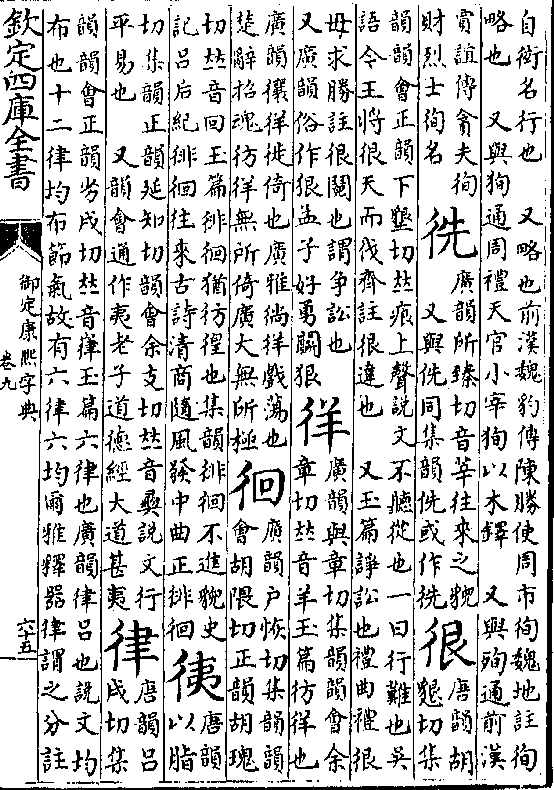 自衒名行也　又略也前漢魏豹傳陳勝使周市徇魏地註徇
略也　又與狥通周禮天官小宰狥以木鐸　又與殉通前漢
賈誼傳貪夫徇
財烈士徇名
廣韻所臻切音莘往來之貌
又與侁同集韻侁或作
很
唐韻胡
懇切集
韻韻會正韻下墾切𠀤痕上聲說文不聽從也一曰行難也吳
語今王將很天而伐齊註很違也　又玉篇諍訟也禮曲禮很
毋求勝註很鬩也謂爭訟也
又廣韻俗作狠孟子好勇鬭狠
徉
廣韻與章切集韻韻會余
章切𠀤音羊玉篇彷徉也
廣韻儴徉徙倚也廣雅徜徉戲蕩也
楚辭招魂彷徉無所倚廣大無所極
徊
廣韻戶恢切集韻韻
會胡隈切正韻胡瑰
切𠀤音回玉篇徘徊猶彷徨也集韻徘徊不進貌史
記呂后紀徘徊往來古詩清商隨風發中曲正徘徊
唐韻
以脂
切集韻正韻延知切韻會余支切𠀤音彝說文行
平易也　又韻會通作夷老子道德經大道甚夷
律
唐韻呂
戌切集
韻韻會正韻劣戌切𠀤音葎玉篇六律也廣韻律呂也說文均
布也十二律均布節氣故有六律六均爾雅釋器律謂之分註
欽定四庫全書
御定康熙字典
卷九
六十五